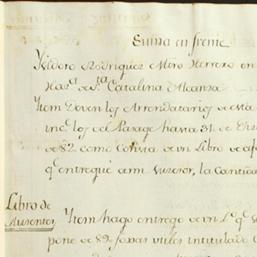 Suma en frente
Ysidoro Rodriguez Miro Herrero en
Haz.ᵃ de S.ᵗᵃ Catalina Alcanza
Ytem Deven los Arrendatarios de esta
inc.ˢ los del Parage hasta 31 de
de 82 como consta de un Libro de
q.ᵉ entregué a mi Subcesor, la Cantida
Libro de
Ausentes
Ytem hago entrego de un L.º q.ᵉ
pone de 89 foxas utiles intitulado